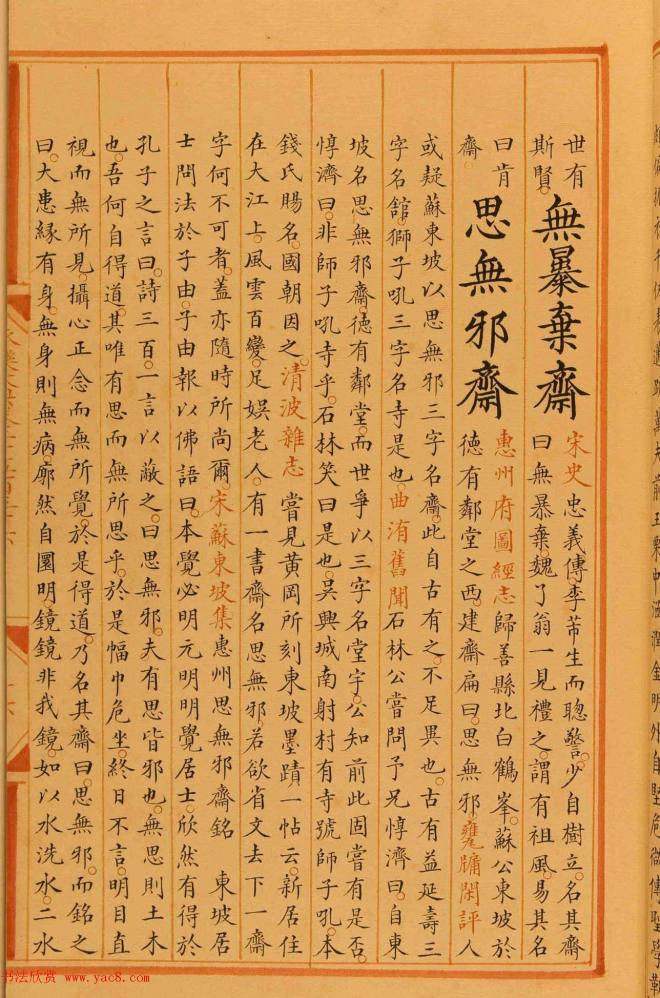 世有
斯賢。
無㬥棄齋
宋史忠義傳李芾生而聰警。少自樹立。名其齋
曰無暴棄。魏了翁一見禮之。謂有祖風。易其名
曰肯
齋
思無邪齋
惠州府圖經志歸善縣北白鶴峯。蘇公東坡於
德有鄰堂之西。建齋扁曰思無邪。甕牖閑評人
或疑蘇東坡以思無邪三字名齋。此自古有之。不足異也。古有益延壽三
字名館。獅子吼三字名寺是也。曲洧舊聞石林公嘗問予兄惇濟曰。自東
坡名思無邪齋。德有鄰堂。而世爭以三字名堂宇。公知前此固嘗有是否。
惇濟曰。非師子吼寺乎。石林笑曰是也。吳興城南射村有寺號師子吼。本
錢氏賜名。國朝因之。清波雜志嘗見黃岡所刻東坡墨蹟一帖云。新居住
在大江上。風雲百變。足娛老人。有一書齋名思無邪。若欲省文去下一齋
字何不可者。蓋亦隨時所尚爾。宋蘇東坡集惠州思無邪齋銘　東坡居
士問法於子由。子由報以佛語曰。本覺必明。元明明覺。居士欣然有得於
孔子之言曰。詩三百。一言以蔽之。曰思無邪。夫有思皆邪也。無思則土木
也。吾何自得道。其唯有思而無所思乎。於是幅巾危坐。終日不言。明目直
視而無所見。攝心正念而無所覺。於是得道。乃名其齋曰。思無邪。而銘之
曰。大患緣有身。無身則無病。廓然自圜明。鏡鏡非我鏡。如以水洗水。二水
书法欣赏 www.yac8.com